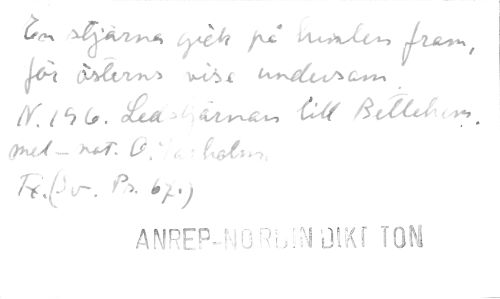 En stjärna gick på himlen fram,
för österns vise undersam
N. 196. Ledstjärnan till Betlehem.
mel - not. O.
Tx. (Sv. Ps. 67.)
ANREP-NORDIN DIKT TON